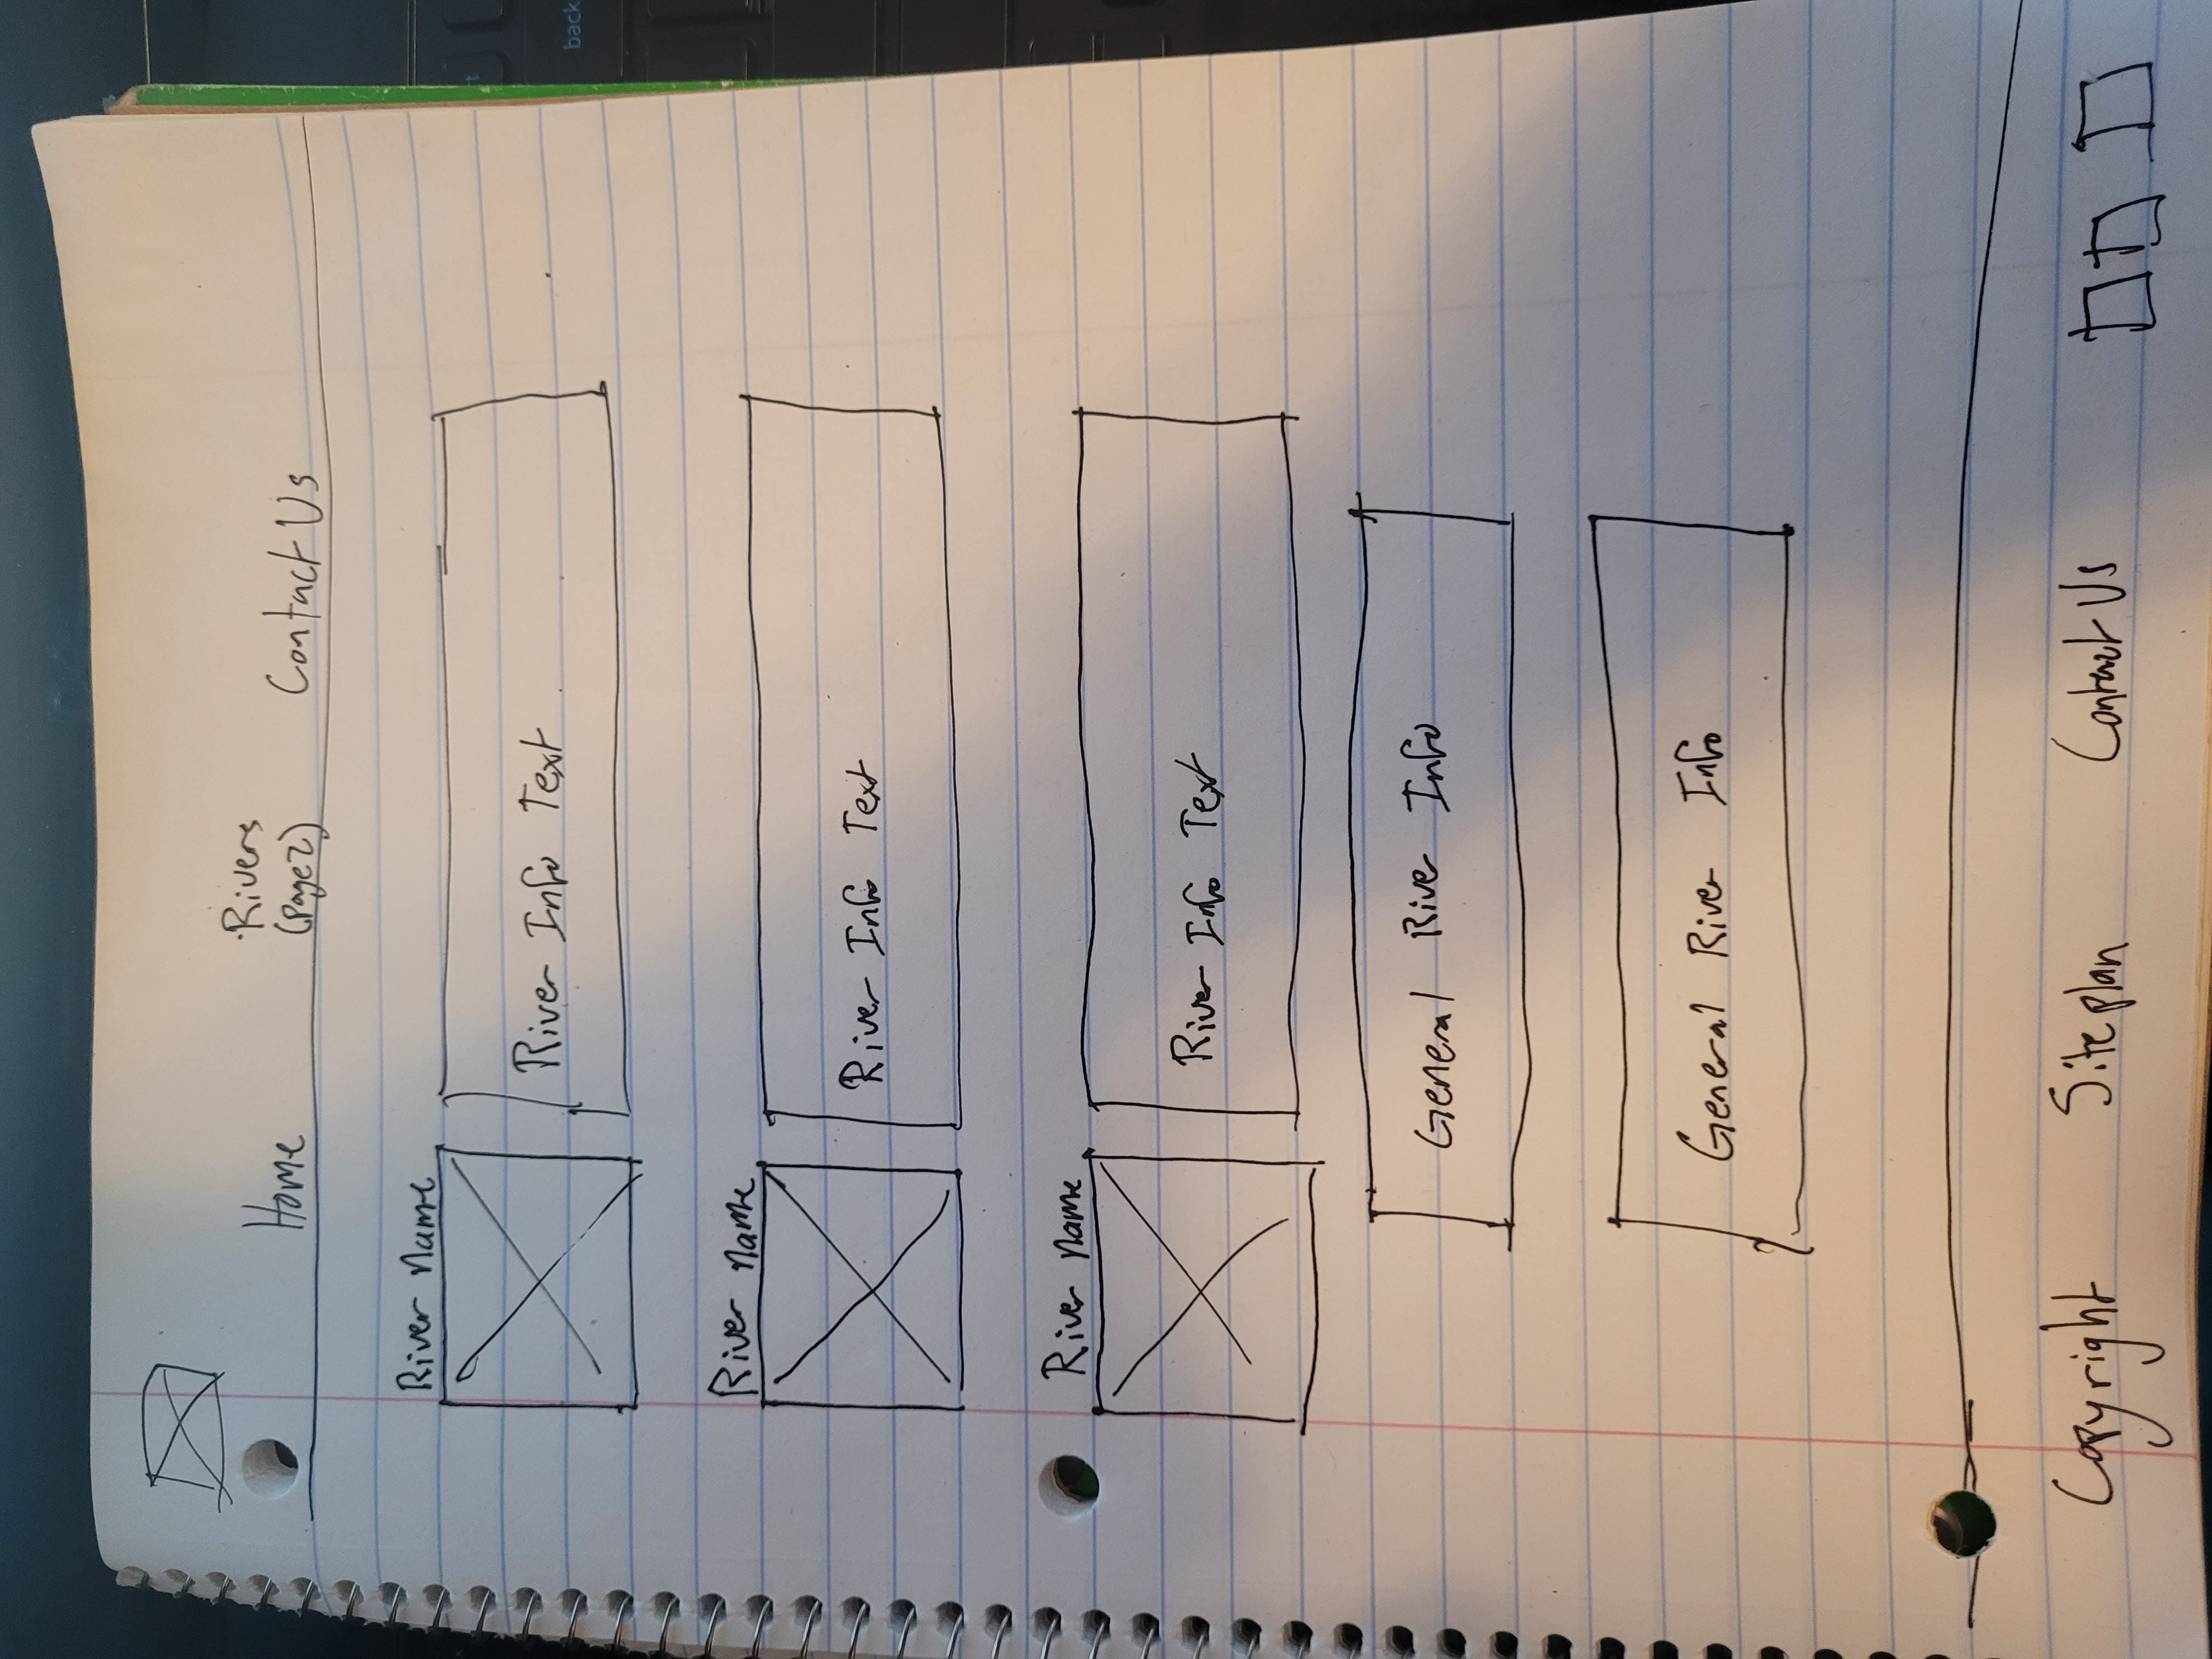 Home
Rivers
(page 2)
Contact Us
River Name
River Info Text
River name
River Info Text
River name
River Info Text
General River Info
General River Info
Copyright
Site plan
Contact Us
back